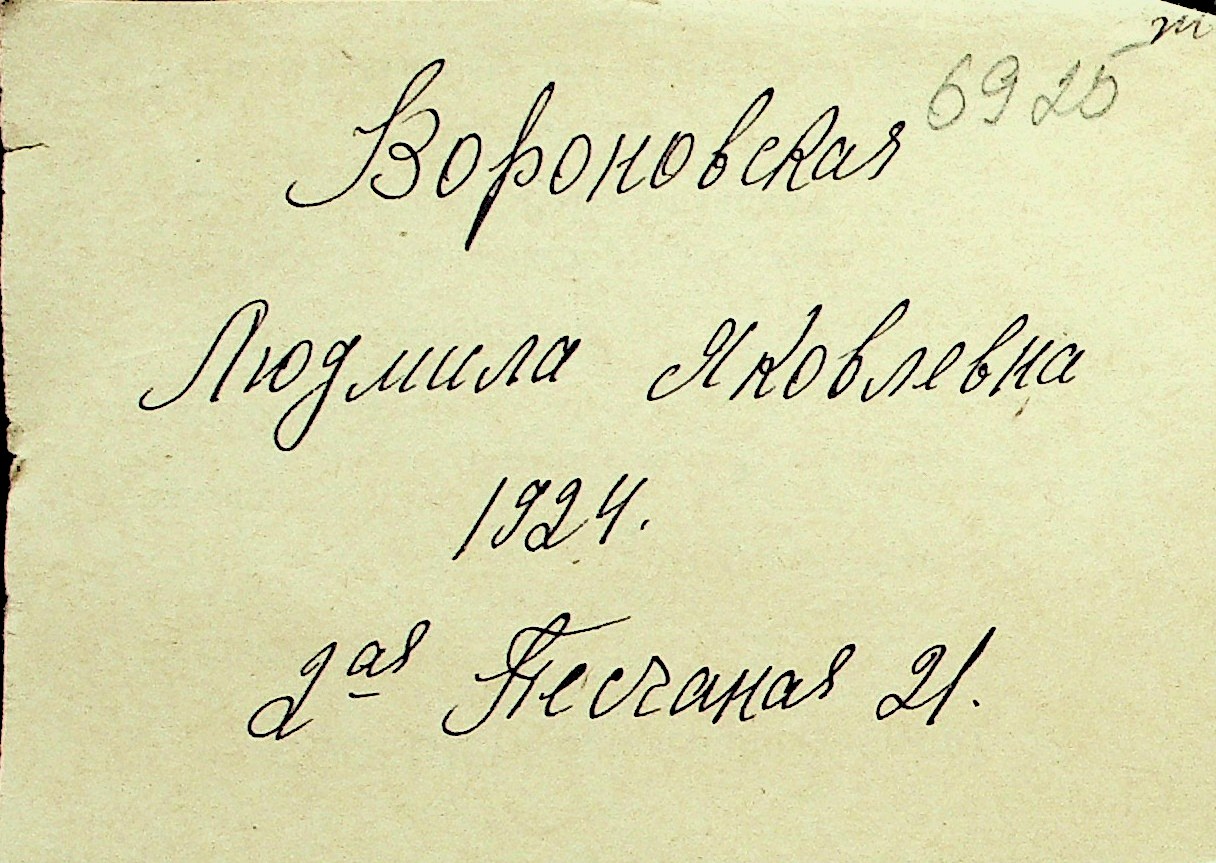 6925
Вороновская
Людмила Яковлевна
1924.
2ая Песчаная 21.